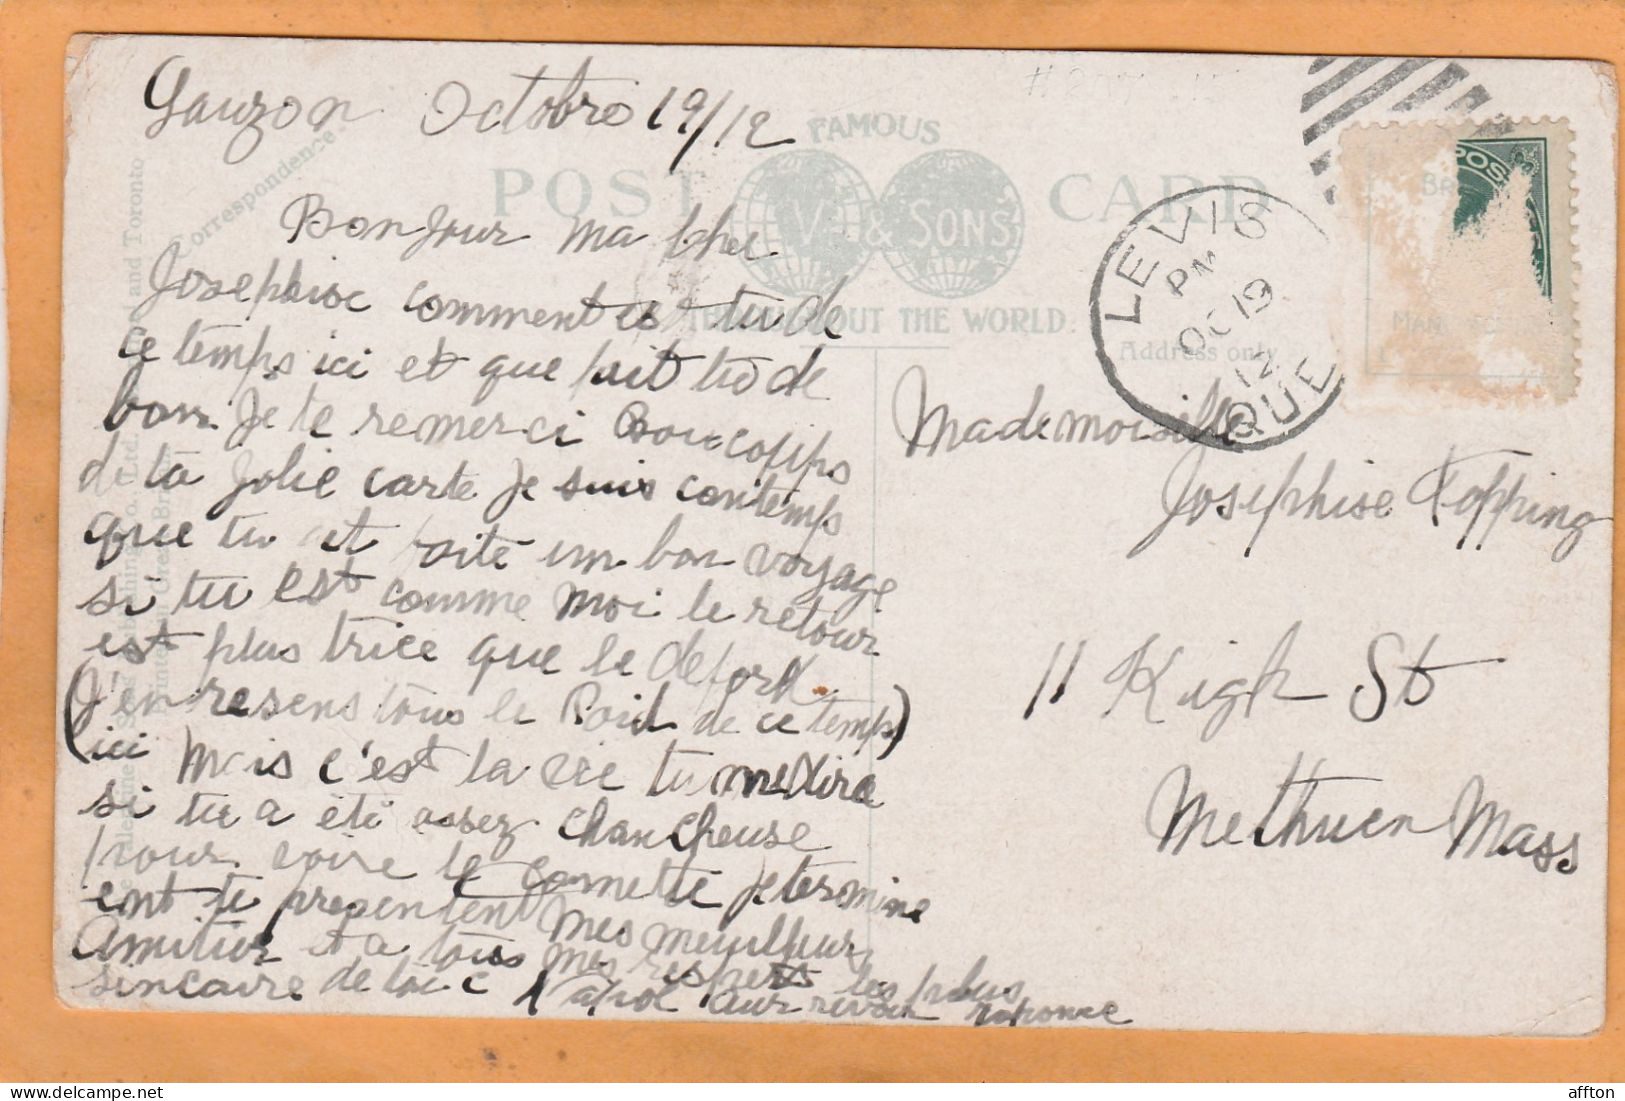 Lauzon Octobre 19/12
FAMOUS
POST CARD
V & SONS
THROUGHOUT THE WORLD.
Correspondence.
Address only
LEVIS
PM 6
OC 19
12
QUE
POS
Bonjour ma cher
Josephine comment est tu de
ce temps ici et que fait tu de
bon Je te remerci Boucopps
de ta Jolie carte Je suis contemps
que tu et faite un bon voyage
si tu est comme moi le retour
est plus trice que le depork
(J'en resens tous le Poid de ce temps)
ici Mais c'est la vie tu me dira
si tu a été assez chancheuse
pour voire le comette Je termine
ent te presentent mes meuilleur
Amitier et a tous mes respets les plus
sincaire de toi c aur revoir reponce
Mademoiselle
Josephine Topping
11 High St
Methuen Mass
and Toronto
affton